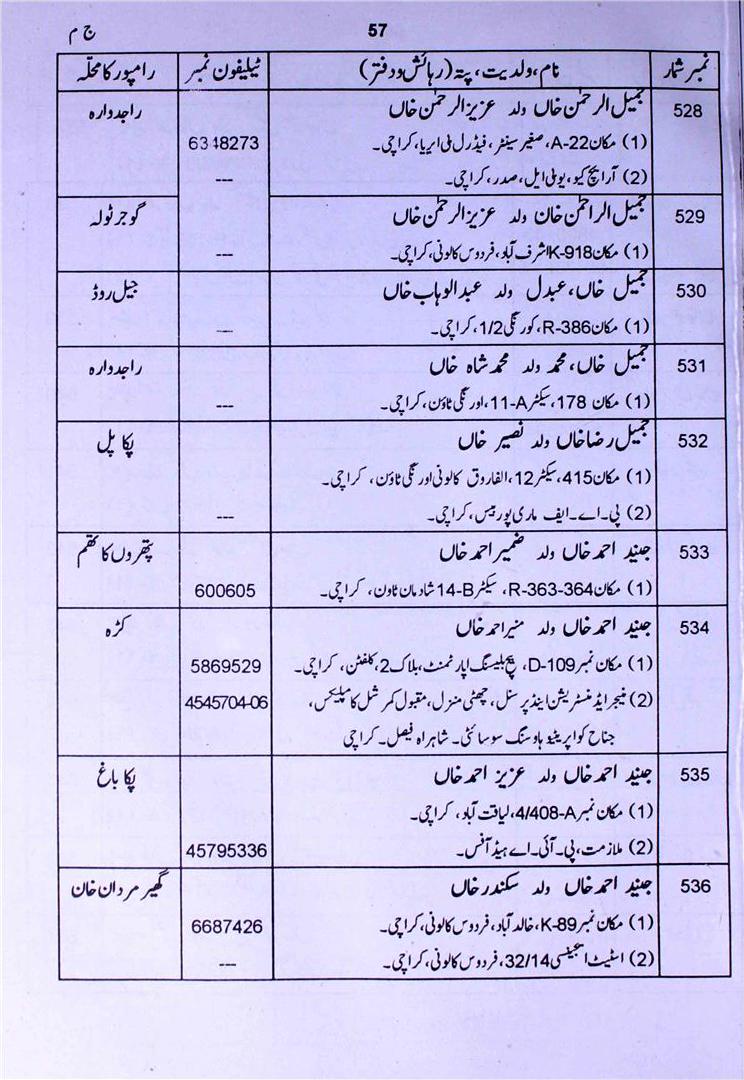 57
ج م
نمبر شمار	نام، ولدیت، پتہ (رہائش و دفتر)	ٹیلیفون نمبر	رامپور کا محلّہ
528	جمیل الرحمٰن خاں ولد عزیز الرحمٰن خاں	راجدوارہ
(1) مکان A-22، صغیر سینٹر، فیڈرل بی ایریا، کراچی۔	6348273
(2) آر ایچ کیو، یو بی ایل، صدر، کراچی۔	---
529	جمیل الراحمٰن خان ولد عزیز الرحمٰن خاں	گوجر ٹولہ
(1) مکان K-918 اشرف آباد، فردوس کالونی، کراچی۔	---
530	جمیل خاں، عبدل ولد عبدالوہاب خاں	جیل روڈ
(1) مکان R-386، کورنگی 1/2، کراچی۔	---
531	جمیل خاں، محمد ولد محمد شاہ خاں	راجدوارہ
(1) مکان 178، سیکٹر 11-A، اورنگی ٹاؤن، کراچی۔	---
532	جمیل رضا خاں ولد نصیر خاں	پکا پل
(1) مکان 415، سیکٹر 12، الفاروق کالونی اورنگی ٹاؤن، کراچی۔
(2) پی۔اے۔ایف ماری پور بیس، کراچی۔	---
533	جنید احمد خاں ولد ضمیر احمد خاں	پتھروں کا کھم
(1) مکان R-363-364، سیکٹر 14-B شادمان ٹاون، کراچی۔	600605
534	جنید احمد خاں ولد منیر احمد خاں	کڑہ
(1) مکان نمبر D-109، بیچ بلیسنگ اپارٹمنٹ، بلاک 2، کلفٹن، کراچی۔	5869529
(2) منیجر ایڈمنسٹریشن اینڈ پرسنل، چھٹی منزل، مقبول کمرشل کامپلیکس،	4545704-06
جناح کوآپریٹیو ہاوسنگ سوسائٹی۔ شاہراہ فیصل۔ کراچی
535	جنید احمد خاں ولد عزیز احمد خاں	پکا باغ
(1) مکان نمبر 4/408-A، لیاقت آباد، کراچی۔
(2) ملازمت، پی۔آئی۔اے ہیڈ آفس۔	45795336
536	جنید احمد خاں ولد سکندر خاں	گھیر مردان خان
(1) مکان نمبر K-89، خالد آباد، فردوس کالونی، کراچی۔	6687426
(2) اسٹیٹ ایجنسی 32/14، فردوس کالونی، کراچی۔	---